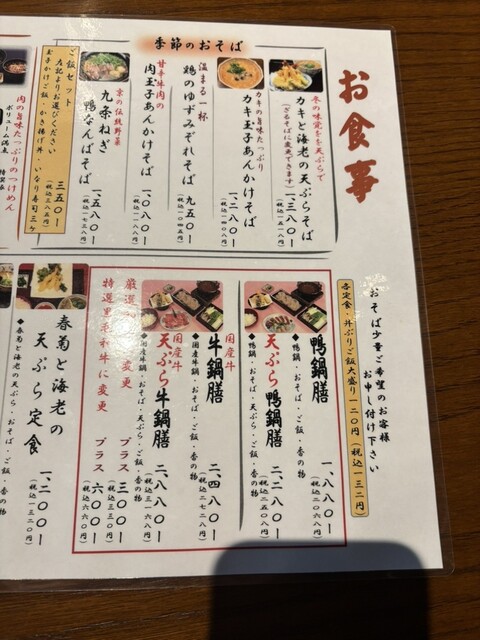 お食事
季節のおそば
冬の味覚を天ぷらで
カキと海老の天ぷらそば
(ざるそばに変更できます)
一、三八〇ー
(税込一五一八円)
カキの旨味たっぷり
カキ玉子あんかけそば
一、二八〇ー
温まる一杯
鶏のゆずみぞれそば
九五〇ー
(税込一〇四五円)
甘辛牛肉の
肉玉子あんかけそば
一、〇八〇ー
京の伝統野菜
九条ねぎ
鴨なんばそば
一、五八〇ー
(税込一七三八円)
ご飯セット
左記よりお選びください
玉子かけご飯・かき揚げ丼・いなり寿司三ケ
三五〇ー
肉の旨味たっぷりのつけめん
ボリューム満点
おそば少量ご希望のお客様
お申し付け下さい
各定食・丼ぶりご飯大盛り一二〇円(税込一三二円)
鴨鍋膳
◆鴨鍋・おそば・ご飯・香の物
一、八八〇ー
(税込二〇六八円)
天ぷら鴨鍋膳
◆鴨鍋・おそば・天ぷら・ご飯・香の物
二、二八〇ー
(税込二五〇八円)
国産牛
牛鍋膳
◆国産牛鍋・おそば・ご飯・香の物
二、四八〇ー
(税込二七二八円)
国産牛
天ぷら牛鍋膳
◆国産牛鍋・おそば・天ぷら・ご飯・香の物
二、八八〇ー
(税込三一六八円)
変更
プラス
三〇〇ー
(税込三三〇円)
特選黒毛和牛に変更
プラス
六〇〇ー
(税込六六〇円)
春菊と海老の
天ぷら定食
◆春菊と海老の天ぷら・おそば・ご飯・香の物
一、二〇〇ー
(税込一三二〇円)